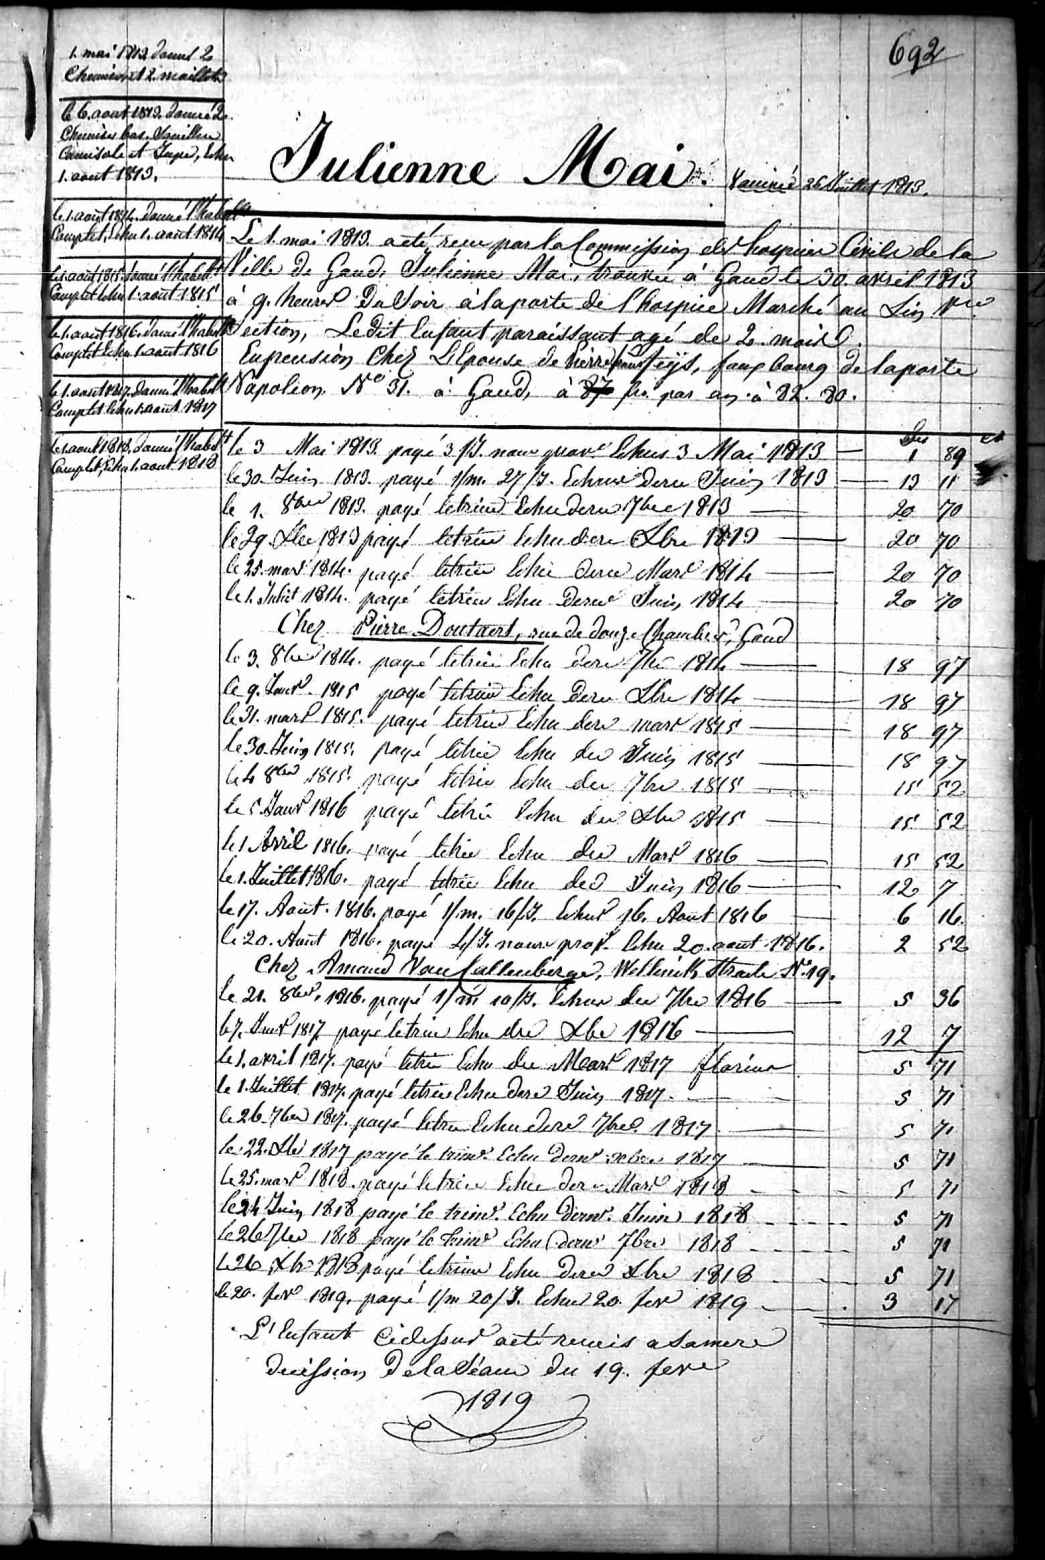 692
1. mai 1813 donné 2
Chemises et 2 maillots
le 6. aout 1813. donné 2.
Chemises bas. Souillers
Camisole et Jupe, Echu
1. aout 1813.
le 1. août 1814. donné l'habillt
Complet, Echu 1. août 1814
le 1. août 1815. donné l'habillt
Complet Echu 1. août 1815
le 1. août 1816. donné l'habillt
Complet Echu 1. août 1816
le 1. août 1817. donné l'habillt
Complet Echu 1. août 1817
le 1. août 1818. donné l'habillt
Complet, Echu 1. août 1818
Julienne Mai. Vaciné 26 Juillet 1813.
Le 1. mai 1813. a été reçu par la Commission des hospices Civils de la
Ville de Gand, Julienne Mai, trouvée à Gand le 30. avril 1813
à 9. heures du Soir à la porte de l'hospice Marché au Lin
Section, Le dit Enfant paraissant agé de 2. mois.
En pension Chez L'Epouse de Pierre teijs, fauxbourg de la porte
Napoléon, No 31. à Gand, à 87 frs. par an. à 82. 80.
le 3 Mai 1813. payé 3/J. nour Echus 3 Mai 1813 1 89
le 30. Juin 1813. payé 1/m. 27/J. Echus dern Juin 1813 13 11
le 1. 8bre 1813. payé le trim Echu dern 7bre 1813 20 70
le 29. Xbre 1813 payé le trim Echu dern Xbre 1813 20 70
le 25. mars 1814. payé le trim Echu dern Mars 1814 20 70
le 1. Juliet 1814. payé le trim Echu dern Juin 1814 20 70
Chez Pierre Doutaert, rue de douze Chambres, Gand
le 3. 8bre 1814. payé le trim Echu dern 7bre 1814 18 97
le 9. Janv. 1815 payé le trim Echu dern Xbre 1814 18 97
le 31. mars 1815. payé le trim Echu dern mars 1815 18 97
le 30. Juin 1815. payé le trim Echu der Juin 1815 18 97
le 4 8bre 1815. payé le trim Echu der 7bre 1815 15 52
le 5. Janv 1816 payé le trim Echu der Xbre 1815 15 52
le 1 Avril 1816. payé le trim Echu der Mars 1816 15 52
le 1. Juillet 1816. payé le trim Echu der Juin 1816 12 7
le 17. Août. 1816. payé 1/m. 16/J. Echus 16. Aout 1816 6 16
le 20. Août 1816. payé 4/J. nour Echu 20. aout 1816. 2 52
Chez Amand Van Callenberge, Straete No 19.
le 21. 8bre. 1816. payé 1/m 10/J. Echus der 7bre 1816 5 36
le 7. Janv 1817. payé le trim Echu der Xbre 1816 12 7
le 1. avril 1817. payé le trim Echu der Mars 1817 florins 5 71
le 1. Juillet 1817. payé le trim Echu dern Juin 1817. 5 71
le 26. 7bre 1817. payé le trim Echu dern 7bre 1817 5 71
le 22. Xbr 1817 payé le trimr. Echu dernr xbre 1817 5 71
le 25. mars 1818. payé le trim Echu der Mars 1818 5 71
le 24 Juin 1818 payé le trimr. Echu dernr. Juin 1818 5 71
le 26 7bre 1818 payé le trimr Echu dernr 7bre 1818 5 71
le 26 Xbr 1818 payé le trim Echu dern Xbre 1818 5 71
le 20. fevr 1819. payé 1/m 20/J. Echu 20. fevr 1819 3 17
L'Enfant Cidessus a été remis a sa mere
décission de la Séance du 19. fevr
1819